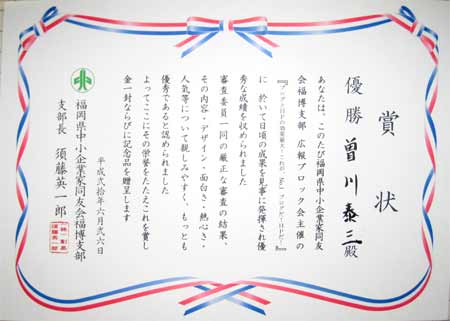 賞状
優勝 曽川泰三殿
あなたは、このたび福岡県中小企業家同友
会福博支部 広報ブロック会主催の
に 於いて日頃の成果を見事に発揮され優
秀な成績を収められました
審査委員一同の厳正な審査の結果、
その内容・デザイン・面白さ・熱心さ・
人気等について親しみやすく、もっとも
優秀であると認められました
よってここにその栄誉をたたえこれを賞し
金一封ならびに記念品を贈呈します
平成弐拾年六月弐六日
福岡県中小企業家同友会福博支部
支部長 須藤英一郎